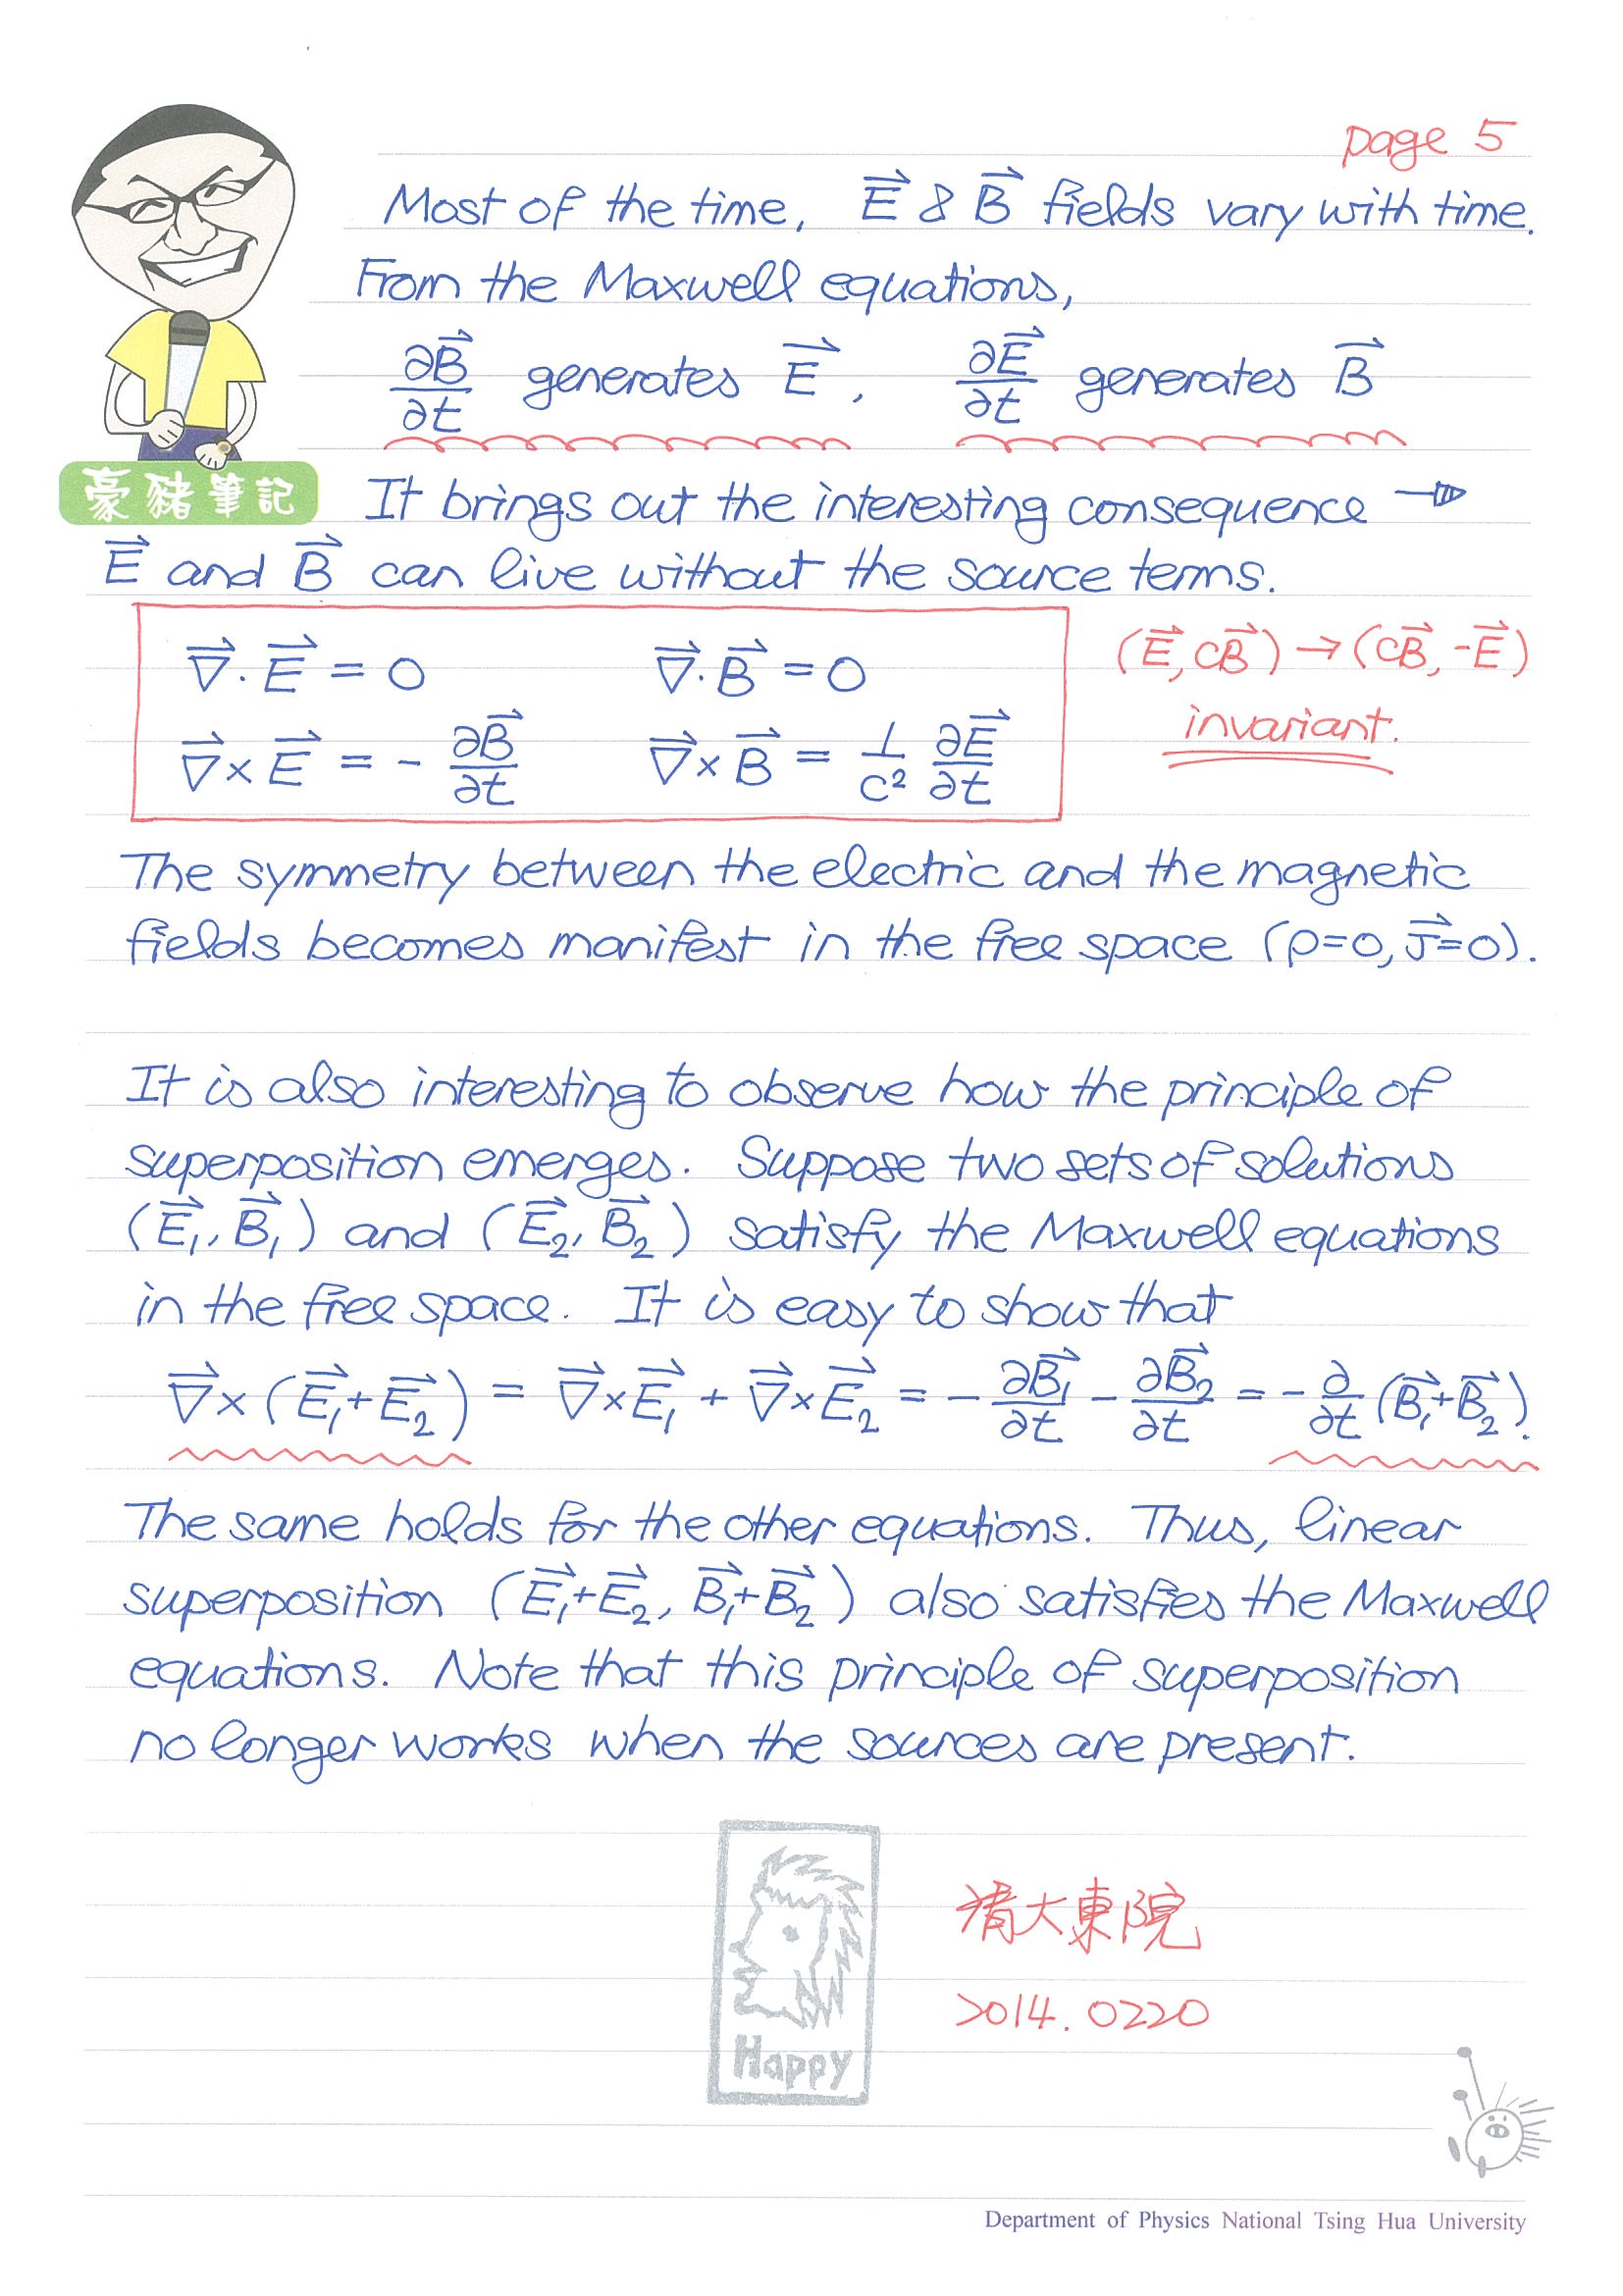 page 5
Most of the time, E⃗ & B⃗ fields vary with time.
From the Maxwell equations,
∂B⃗/∂t generates E⃗, ∂E⃗/∂t generates B⃗
豪豬筆記
It brings out the interesting consequence →
E⃗ and B⃗ can live without the source terms.
∇⃗·E⃗ = 0 ∇⃗·B⃗ = 0
(E⃗, cB⃗) → (cB⃗, -E⃗)
∇⃗×E⃗ = - ∂B⃗/∂t ∇⃗×B⃗ = 1/c² ∂E⃗/∂t
invariant.
The symmetry between the electric and the magnetic
fields becomes manifest in the free space (ρ=0, J⃗=0).
It is also interesting to observe how the principle of
superposition emerges. Suppose two sets of solutions
(E⃗₁, B⃗₁) and (E⃗₂, B⃗₂) satisfy the Maxwell equations
in the free space. It is easy to show that
∇⃗×(E⃗₁+E⃗₂) = ∇⃗×E⃗₁ + ∇⃗×E⃗₂ = - ∂B⃗₁/∂t - ∂B⃗₂/∂t = - ∂/∂t (B⃗₁+B⃗₂).
The same holds for the other equations. Thus, linear
superposition (E⃗₁+E⃗₂, B⃗₁+B⃗₂) also satisfies the Maxwell
equations. Note that this principle of superposition
no longer works when the sources are present.
清大東院
2014.0220
Happy
Department of Physics National Tsing Hua University